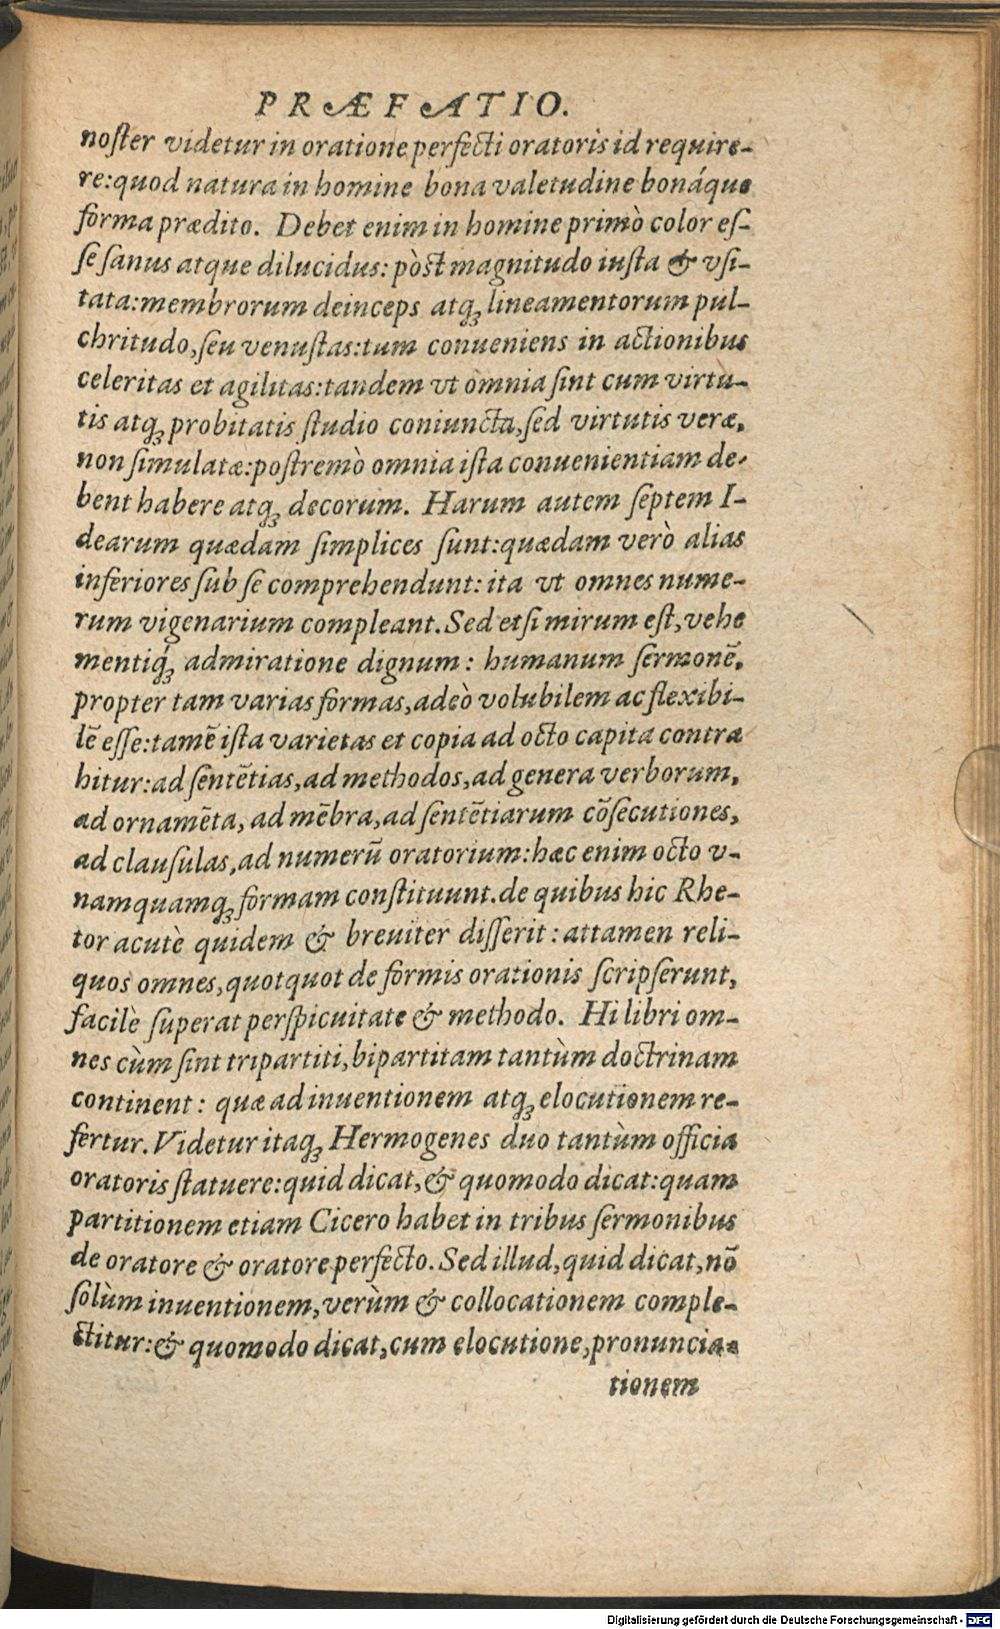 PRÆFATIO.
noſter videtur in oratione perfecti oratoris id require-
re: quod natura in homine bona valetudine bonáque
forma prædito. Debet enim in homine primò color eſ-
ſe ſanus atque dilucidus: pòst magnitudo iuſta & vſi-
tata: membrorum deinceps atq; lineamentorum pul-
chritudo, ſeu venuſtas: tum conueniens in actionibus
celeritas et agilitas: tandem vt omnia ſint cum virtu-
tis atq; probitatis ſtudio coniuncta, ſed virtutis veræ,
non ſimulatæ: poſtremò omnia iſta conuenientiam de-
bent habere atq; decorum. Harum autem ſeptem I-
dearum quædam ſimplices ſunt: quædam verò alias
inferiores ſub ſe comprehendunt: ita vt omnes nume-
rum vigenarium compleant. Sed etſi mirum eſt, vehe
mentiq́; admiratione dignum: humanum ſermonē,
propter tam varias formas, adeò volubilem ac flexibi-
lē eſſe: tamē iſta varietas et copia ad octo capita contra
hitur: ad ſentētias, ad methodos, ad genera verborum,
ad ornamēta, ad mēbra, ad ſentētiarum cōſecutiones,
ad clauſulas, ad numerū oratorium: hæc enim octo v-
namquamq; formam conſtituunt. de quibus hic Rhe-
tor acutè quidem & breuiter diſſerit: attamen reli-
quos omnes, quotquot de formis orationis ſcripſerunt,
facilè ſuperat perſpicuitate & methodo. Hi libri om-
nes cùm ſint tripartiti, bipartitam tantùm doctrinam
continent: quæ ad inuentionem atq; elocutionem re-
fertur. Videtur itaq; Hermogenes duo tantùm officia
oratoris ſtatuere: quid dicat, & quomodo dicat: quam
partitionem etiam Cicero habet in tribus ſermonibus
de oratore & oratore perfecto. Sed illud, quid dicat, nō
ſolùm inuentionem, verùm & collocationem comple-
ctitur: & quomodo dicat, cum elocutione, pronuncia-
tionem
Digitalisierung gefördert durch die Deutsche Forschungsgemeinschaft - DFG